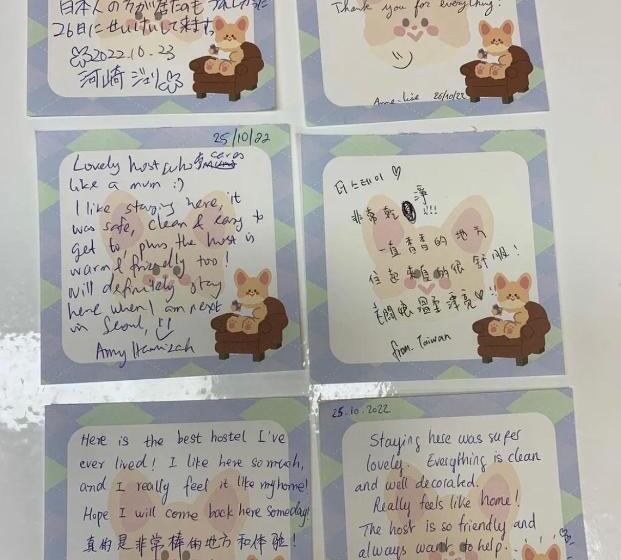 日本人の方が居たのも
26日に
2022.10.23
河崎 ジュリ
Thank you for everything!
Anne-Lise 26/10/22
25/10/22
Lovely host who cares
like a mum :)
I like staying here, it
was safe, clean & easy to
get to, plus the host is
warm & friendly too!
Will definitely stay
here when I am next
in Seoul,
Amy
더스테이 ♡
非常乾淨!!!
一直香香的 地方
住起來真的很舒服!
老闆娘溫柔漂亮♡
from. Taiwan
Here is the best hostel I've
ever lived! I like here so much,
and I really feel it like my home!
Hope I will come back here someday!
真的是非常棒的地方和体验!
25.10.2022
Staying here was super
lovely. Everything is clean
and well decorated.
Really feels like home!
The host is so friendly and
always want to help.